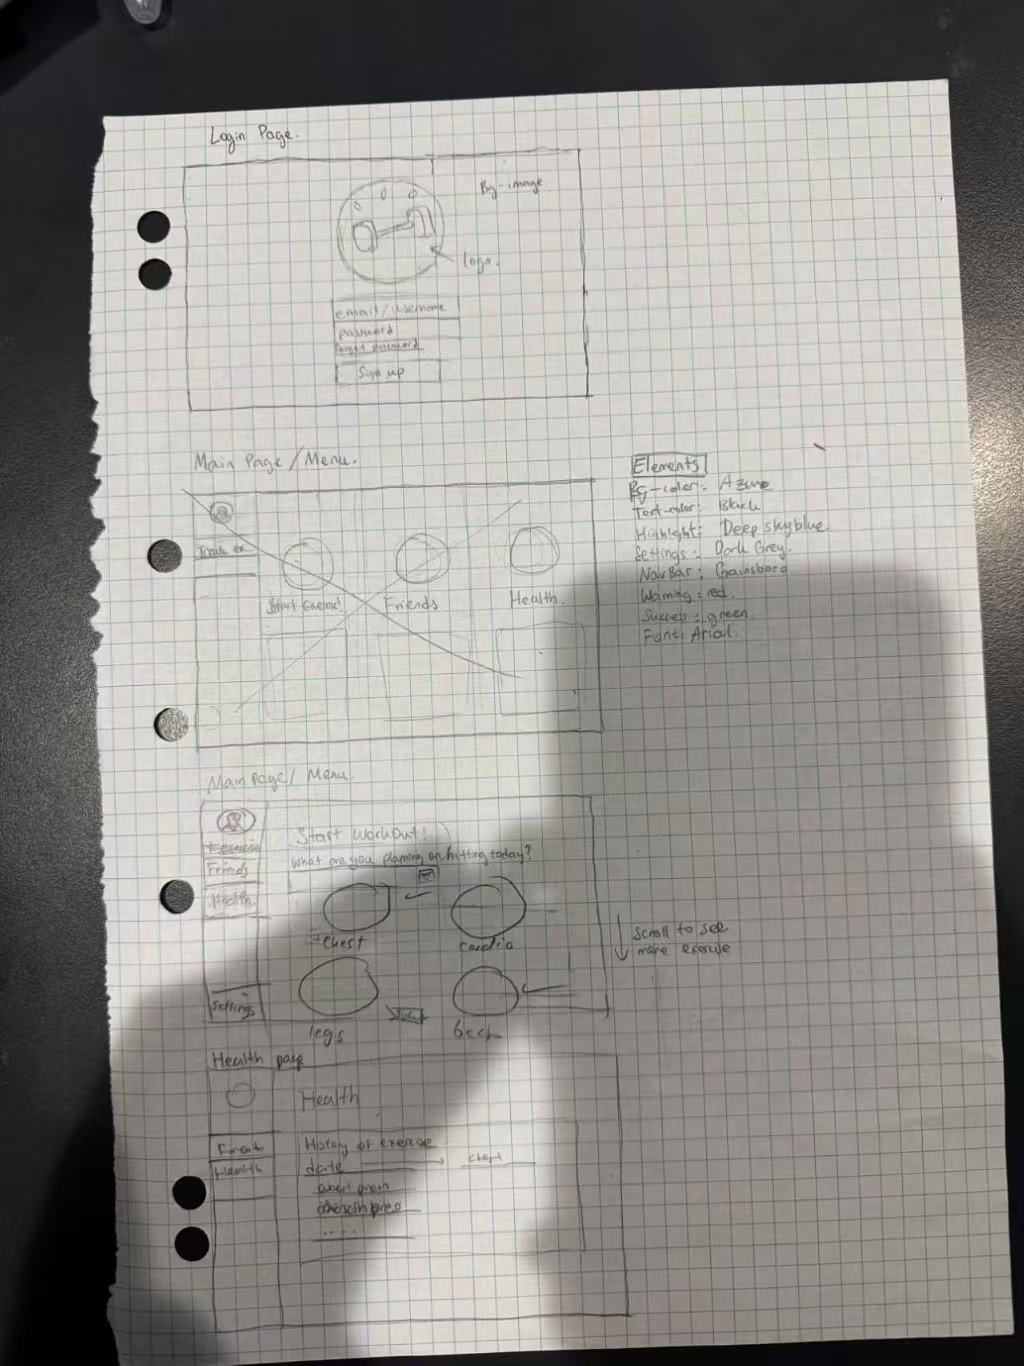 Login Page.
Bg-image
Logo.
email/username
password
forget password
Sign up
Main Page/Menu.
Start Exercise!
Friends
Health.
Elements
Bg-color: Azure
Text-color: Black
Highlight: Deep skyblue
Settings: Dark Grey.
NavBar: Gainsboro
Warning: red.
Success: green
Font: Arial.
Main Page/ Menu
Exercise
Friends
Health
Settings
Start Workout!
What are you planning on hitting today?
Chest
Cardio
legs
back
Scroll to see
more exercise
Health page
Friends
Health
Health
History of exercise
date
chest
....